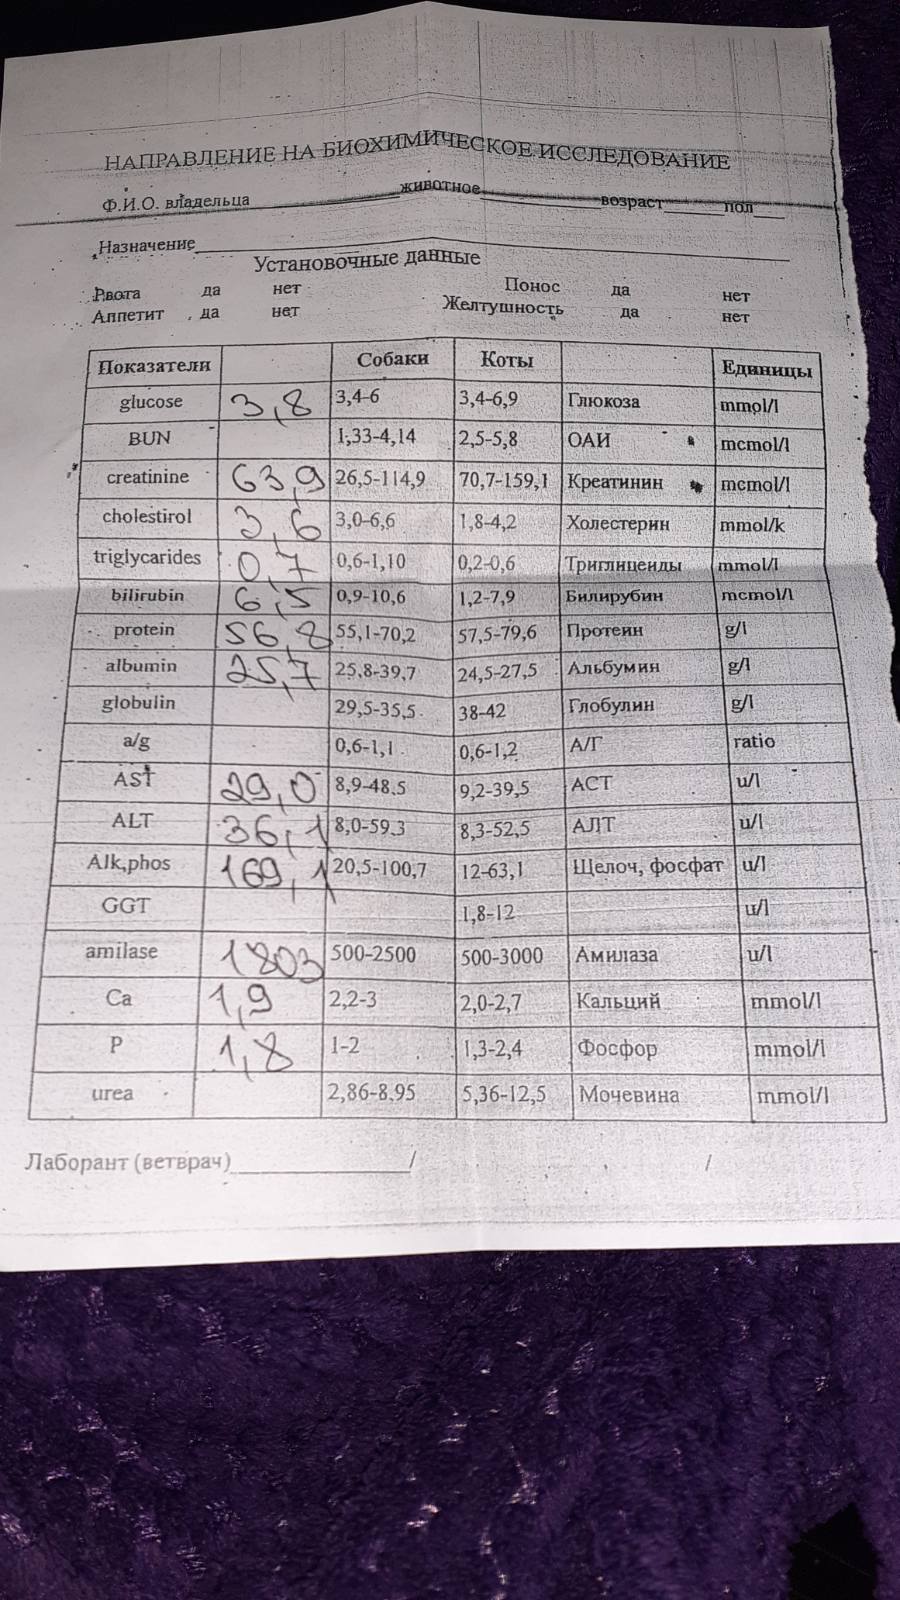 НАПРАВЛЕНИЕ НА БИОХИМИЧЕСКОЕ ИССЛЕДОВАНИЕ
Ф.И.О. владельца животное возраст пол
Назначение
Установочные данные
Рвота да нет Понос да нет
Аппетит да нет Желтушность да нет
Показатели Собаки Коты Единицы
glucose 3,8 3,4-6 3,4-6,9 Глюкоза mmol/l
BUN 1,33-4,14 2,5-5,8 ОАИ mcmol/l
creatinine 63,9 26,5-114,9 70,7-159,1 Креатинин mcmol/l
cholestirol 3,6 3,0-6,6 1,8-4,2 Холестерин mmol/k
triglycarides 0,7 0,6-1,10 0,2-0,6 Триглицеиды mmol/l
bilirubin 6,5 0,9-10,6 1,2-7,9 Билирубин mcmol/l
protein 56,8 55,1-70,2 57,5-79,6 Протеин g/l
albumin 25,7 25,8-39,7 24,5-27,5 Альбумин g/l
globulin 29,5-35,5 38-42 Глобулин g/l
a/g 0,6-1,1 0,6-1,2 А/Г ratio
AST 29,0 8,9-48,5 9,2-39,5 АСТ u/l
ALT 36,1 8,0-59,3 8,3-52,5 АЛТ u/l
Alk,phos 169,1 20,5-100,7 12-63,1 Щелоч, фосфат u/l
GGT 1,8-12 u/l
amilase 1803 500-2500 500-3000 Амилаза u/l
Ca 1,9 2,2-3 2,0-2,7 Кальций mmol/l
P 1,8 1-2 1,3-2,4 Фосфор mmol/l
urea 2,86-8,95 5,36-12,5 Мочевина mmol/l
Лаборант (ветврач) / /